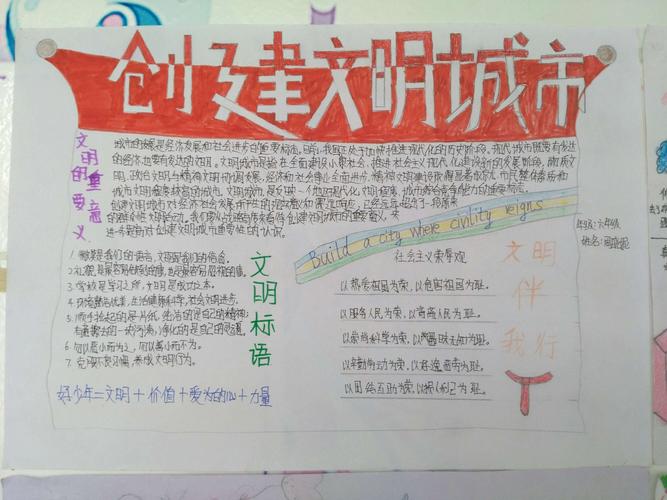 创建文明城市
文明的重要意义
城市的发展是经济发展和社会进步的重要标志。目前,我国正处于加快推进现代化的历史阶段。现代城市既要有发达
的经济,也要有发达的文明。文明城市是在全面建设小康社会、推进社会主义现代化建设新的发展阶段,物质文
明、政治文明与精神文明协调发展,经济和社会事业全面进步,精神文明建设取得显著成就,市民整体素质和
城市文明程度较高的城市。文明城市,是反映一个地方现代化文明程度、城市综合竞争能力的重要标志。
创建文明城市对经济社会发展所产生的
进一步提高对创建文明城市重要性的认识。
Build a city where civility reigns
年级:六年级
姓名:
文明标语
1.微笑是我们的语言,文明是我们的信念。
2.礼貌是最容易做到的事,也是最容易忽视的事。
3.学校是学习之所,文明是成功之本。
4.环境整洁优美,生活健康科学,社会文明进步。
5.弯下腰拾起的是片纸,纯洁的是自己的精神;
有意擦去的一块污渍,净化的是自己的灵魂。
6.勿以恶小而为之,勿以善小而不为。
7.克服不良习惯,养成文明行为。
好少年=文明+价值+爱为的心+力量
社会主义荣辱观
以热爱祖国为荣,以危害祖国为耻。
以服务人民为荣,以背离人民为耻。
以崇尚科学为荣,以愚昧无知为耻。
以辛勤劳动为荣,以好逸恶劳为耻。
以团结互助为荣,以损人利己为耻。
文明
伴
我行